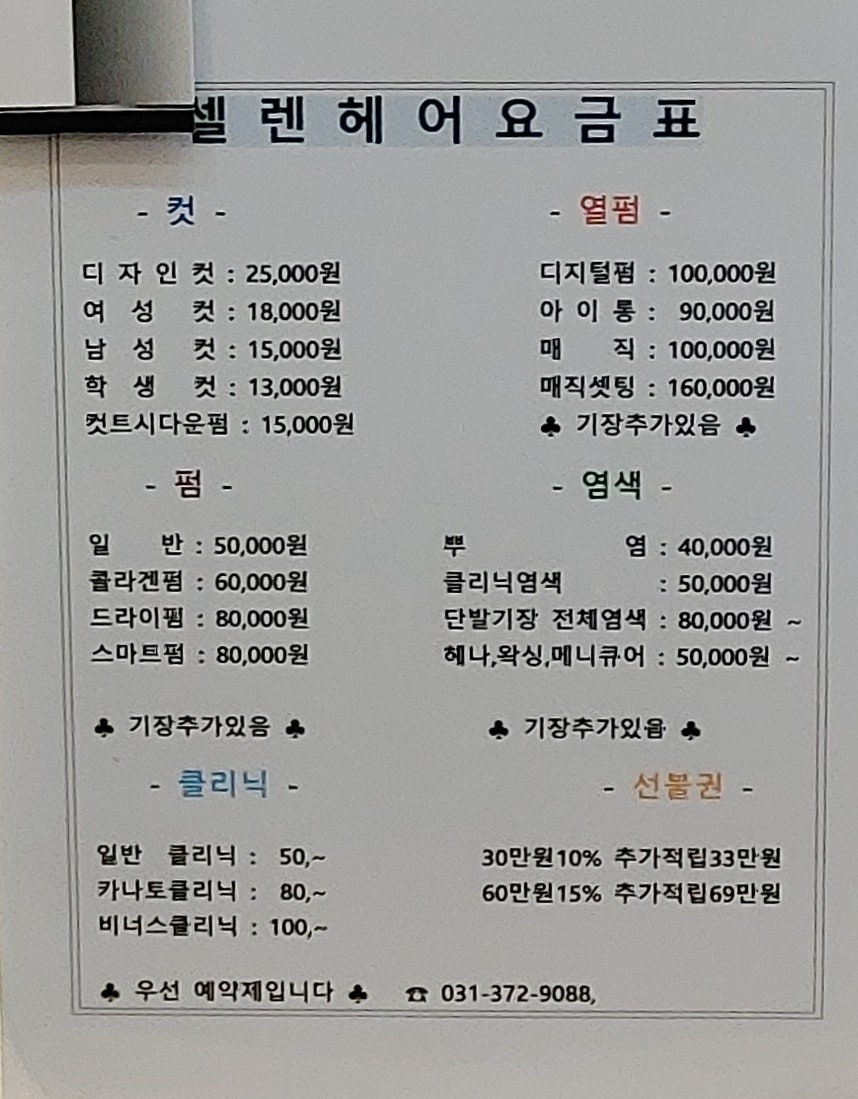 셀렌헤어요금표
- 컷 -
디자인컷 : 25,000원
여성 컷 : 18,000원
남성 컷 : 15,000원
학생 컷 : 13,000원
컷트시다운펌 : 15,000원
- 열펌 -
디지털펌 : 100,000원
아이롱 : 90,000원
매 직 : 100,000원
매직셋팅 : 160,000원
♣ 기장추가있음 ♣
- 펌 -
일 반 : 50,000원
콜라겐펌 : 60,000원
드라이펌 : 80,000원
스마트펌 : 80,000원
♣ 기장추가있음 ♣
- 염색 -
뿌 염 : 40,000원
클리닉염색 : 50,000원
단발기장 전체염색 : 80,000원 ~
헤나,왁싱,메니큐어 : 50,000원 ~
♣ 기장추가있음 ♣
- 클리닉 -
일반 클리닉 : 50,~
카나토클리닉 : 80,~
비너스클리닉 : 100,~
- 선불권 -
30만원10% 추가적립33만원
60만원15% 추가적립69만원
♣ 우선 예약제입니다 ♣ ☎ 031-372-9088,